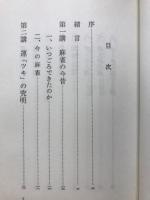 目次
序
緒言
第一講 麻雀の今昔
一、いつごろできたのか
二、今の麻雀
第二講 運「ツキ」の究明